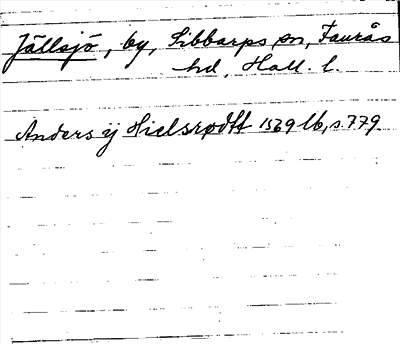 Jällsjö, by, Sibbarps sn, Faurås
hd, Hall. l.
Anders ij Hielsrødtt 1569 1/6, s. 779